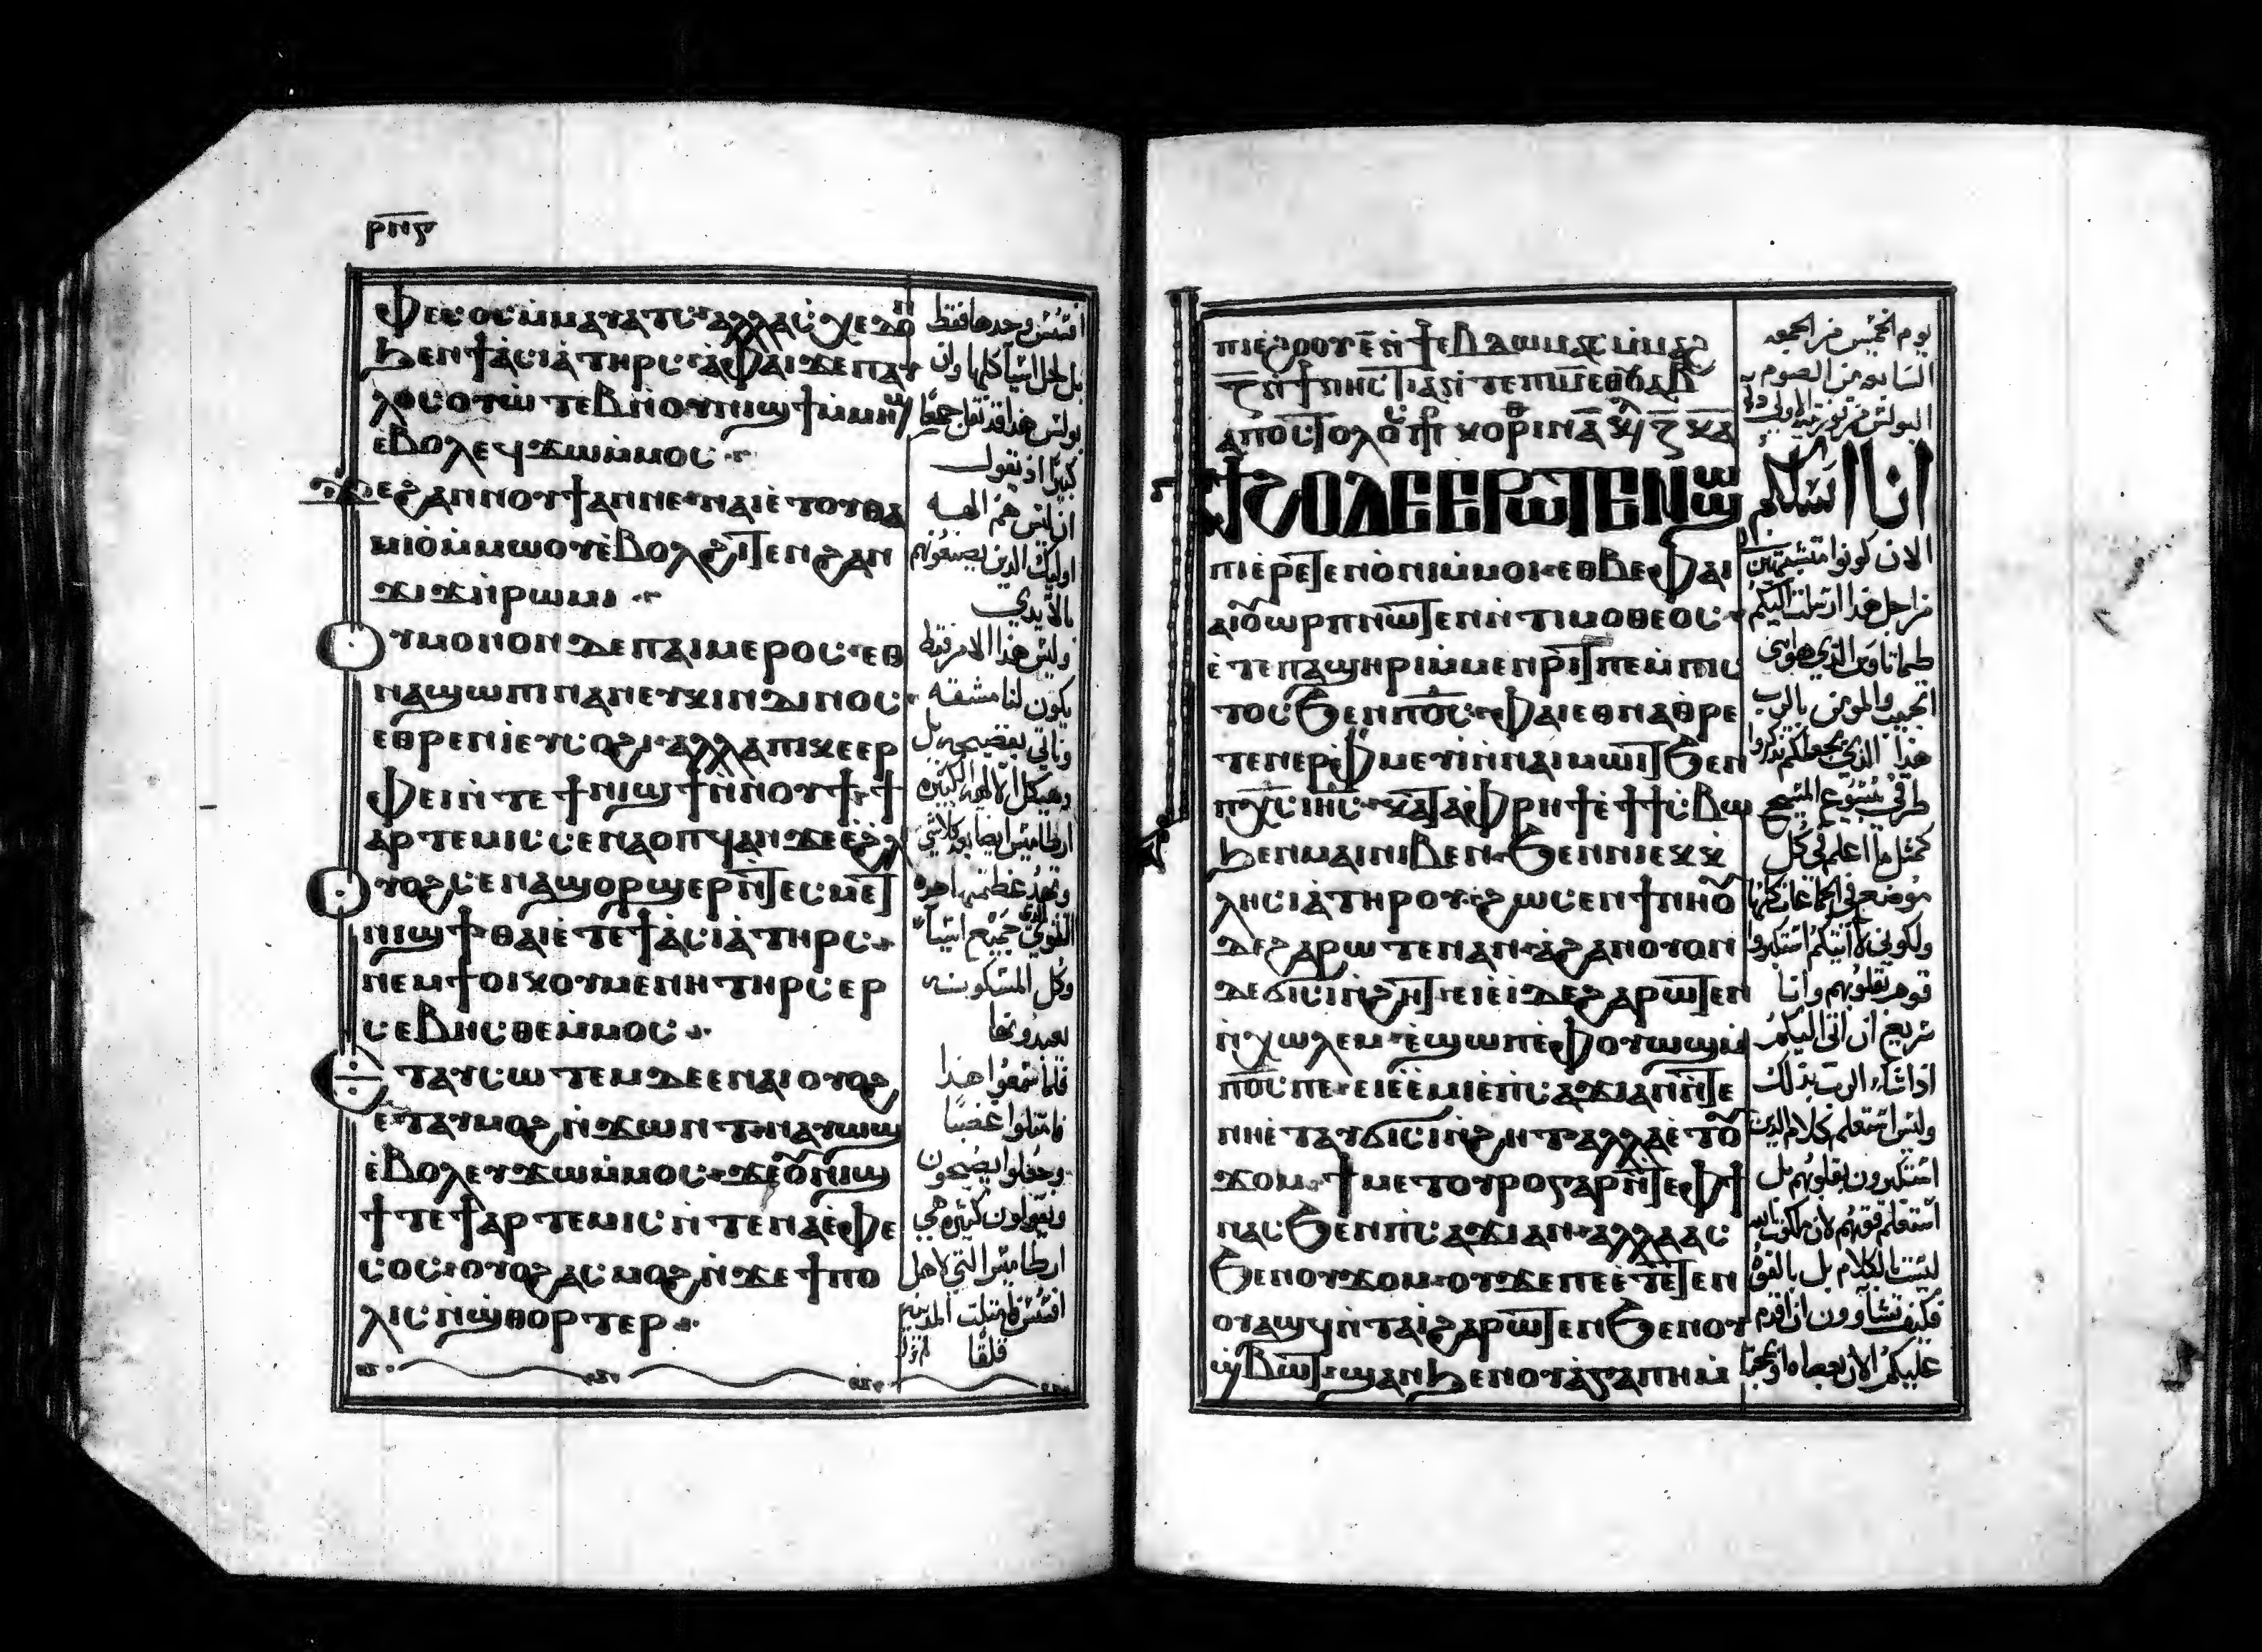 ⲣⲛⲋ
ⲫⲉⲥⲟⲥ ⲙⲙⲁⲩⲁⲧⲥ ⲁⲗⲗⲁ ⲥⲭⲉⲇⲟⲛ
ϧⲉⲛ ϯⲁⲥⲓⲁ ⲧⲏⲣⲥ ⲁ ⲫⲁⲓ ϫⲉ ⲡⲁⲩ
ⲗⲟⲥ ⲟⲩⲱⲧⲉⲃ ⲛⲟⲩⲛⲓϣϯ ⲙⲙⲏϣ
ⲉⲃⲟⲗ ⲉϥϫⲱ ⲙⲙⲟⲥ
ϫⲉ ϩⲁⲛⲛⲟⲩϯ ⲁⲛ ⲛⲉ ⲛⲁⲓ ⲉⲧⲟⲩⲑⲁ
ⲙⲓⲟ ⲙⲙⲱⲟⲩ ⲉⲃⲟⲗ ϩⲓⲧⲉⲛ ϩⲁⲛ
ϫⲓϫ ⲛⲣⲱⲙⲓ
ⲟⲩⲙⲟⲛⲟⲛ ⲇⲉ ⲡⲁⲓⲙⲉⲣⲟⲥ ⲉⲑ
ⲛⲁϣⲱⲡⲓ ⲛⲁⲛ ⲉⲩⲕⲓⲛⲇⲓⲛⲟⲥ
ⲉⲑⲣⲉⲛⲓ ⲉⲩⲥⲟϩⲓ ⲁⲗⲗⲁ ⲡⲓⲕⲉⲉⲣ
ⲫⲉⲓ ⲛⲧⲉ ϯⲛⲓϣϯ ⲛⲛⲟⲩϯ ϯ
ⲁⲣⲧⲉⲙⲓⲥ ⲥⲉⲛⲁⲟⲡϥ ⲁⲛ ϫⲉ ⲉϩⲗⲓ
ⲟⲩⲟϩ ⲥⲉⲛⲁϣⲟⲣϣⲉⲣ ⲛⲧⲉⲥⲙⲉⲧ
ⲛⲓϣϯ ⲑⲁⲓ ⲉⲧⲉ ϯⲁⲥⲓⲁ ⲧⲏⲣⲥ
ⲛⲉⲙ ϯⲟⲓⲕⲟⲩⲙⲉⲛⲏ ⲧⲏⲣⲥ ⲉⲣ
ⲥⲉⲃⲏⲥⲑⲉ ⲙⲙⲟⲥ
ⲉⲧⲁⲩⲥⲱⲧⲉⲙ ⲇⲉ ⲉⲛⲁⲓ ⲟⲩⲟϩ
ⲉⲧⲁⲩⲙⲟϩ ⲛϫⲱⲛⲧ ⲛⲁⲩⲱϣ
ⲉⲃⲟⲗ ⲉⲩϫⲱ ⲙⲙⲟⲥ ϫⲉ ⲟⲩⲛⲓϣ
ϯ ⲧⲉ ϯⲁⲣⲧⲉⲙⲓⲥ ⲛⲧⲉ ⲛⲁ ⲉⲫⲉ
ⲥⲟⲥ ⲟⲩⲟϩ ⲁⲥⲙⲟϩ ⲛϫⲉ ϯⲡⲟ
ⲗⲓⲥ ⲛϣⲑⲟⲣⲧⲉⲣ
افسس وحدها فقط
بل لجل اسيا كلها وان
بولس هذا قد نقل جمعا
كبيرا اذ يقول
ان ليس هم الهه
اوليك الذين يصنعونهم
بالايدي
وليس هذا الامر فقط
يكون لنا مشقه
وناتي بفضيحه بل
وهيكل الالهه الكبيره
ارطاميس ايضا يعد كلاشي
وتهدم عظمتها هذه
التي جميع اسيا
وكل المسكونه
يعبدونها
فلما سمعوا هذا
فامتلوا غضبا
وجعلوا يصيحون
ويقولون كبيره هي
ارطاميس التي لاهل
افسس فامتلت المدينه
قلقا
ⲡⲓⲉϩⲟⲟⲩ ⲉ̅ ⲛϯⲉⲃⲇⲱⲙⲁⲥ ⲙⲙⲁϩ
ⲍ̅ ⲛϯⲛⲏⲥⲧⲓⲁ ⲛⲧⲉ ⲡⲓⲙ ⲉⲑⲟⲩⲁⲃ
ⲁⲡⲟⲥⲧⲟⲗⲟⲥ ⲡⲣ ⲕⲟⲣⲓⲛ ⲁ̅ ⲕⲉⲫ ⲍ̅ ⲕⲁ
ϯϩⲟ ⲇⲉ ⲉⲣⲱⲧⲉⲛ ϣⲱ
ⲡⲓ ⲉⲣⲉⲧⲉⲛⲟⲛⲓ ⲙⲙⲟⲓ ⲉⲑⲃⲉ ⲫⲁⲓ
ⲁⲓⲟⲩⲱⲣⲡ ⲛⲱⲧⲉⲛ ⲛⲧⲓⲙⲟⲑⲉⲟⲥ
ⲉⲧⲉ ⲡⲁϣⲏⲣⲓ ⲙⲙⲉⲛⲣⲓⲧ ⲡⲉ ⲙⲡⲓⲥ
ⲧⲟⲥ ϧⲉⲛ ⲡⲟ̅ⲥ̅ ⲫⲁⲓ ⲉⲑⲛⲁⲑⲣⲉ
ⲧⲉⲛⲉⲣⲫⲙⲉⲩⲓ ⲛⲛⲁⲙⲱⲓⲧ ϧⲉⲛ
ⲡⲭ̅ⲥ̅ ⲓⲏ̅ⲥ̅ ⲕⲁⲧⲁ ⲫⲣⲏϯ ⲉϯϯⲥⲃⲱ
ϧⲉⲛ ⲙⲁⲓ ⲛⲓⲃⲉⲛ ϧⲉⲛ ⲛⲓⲉⲕⲕ
ⲗⲏⲥⲓⲁ ⲧⲏⲣⲟⲩ ϩⲱⲥ ⲉⲛϯⲛⲏⲟⲩ
ⲇⲉ ϩⲁⲣⲱⲧⲉⲛ ⲁⲛ ⲁ ϩⲁⲛⲟⲩⲟⲛ
ⲇⲉ ϭⲓⲥⲓ ⲛϩⲏⲧ ⲉⲓⲉⲓ ⲇⲉ ϩⲁⲣⲱⲧⲉⲛ
ⲛⲭⲱⲗⲉⲙ ⲉϣⲱⲡ ⲉⲫⲟⲩⲱϣ ⲙ
ⲡⲟ̅ⲥ̅ ⲡⲉ ⲉⲓⲉⲉⲙⲓ ⲉⲡⲥⲁϫⲓ ⲁⲛ ⲛⲧⲉ
ⲛⲏ ⲉⲧⲁⲩϭⲓⲥⲓ ⲛϩⲏⲧ ⲁⲗⲗⲁ ⲉⲧⲟⲩ
ϫⲟⲙ ϯⲙⲉⲧⲟⲩⲣⲟ ⲅⲁⲣ ⲛⲧⲉ ⲫϯ
ⲛⲁⲥϧⲉⲛ ⲡⲥⲁϫⲓ ⲁⲛ ⲁⲗⲗⲁ ⲁⲥ
ϧⲉⲛ ⲟⲩϫⲟⲙ ⲟⲩ ϫⲉ ⲡⲉ ⲉⲧⲉⲧⲉⲛ
ⲟⲩⲁϣϥ ⲛⲧⲁⲓ ϩⲁⲣⲱⲧⲉⲛ ϧⲉⲛ ⲟⲩ
ϣⲃⲱⲧ ϣⲁⲛ ϧⲉⲛ ⲟⲩⲁⲅⲁⲡⲏ ⲙ
يوم الخميس من الجمعه
السابعه من الصوم
البولس من قرنتيه الاولي
انا اسالكم
الان كونوا متشبهين بي
من اجل هذا ارسلت اليكم
طيماتاوس الذي هو ابني
الحبيب والمومن بالرب
هذا الذي يجعلكم تذكروا
طرقي بيسوع المسيح
كمثل ما اعلم في كل
موضع في الجماعات كلها
ولكوني لا اتيكم استكبروا
قوم بقلوبهم وانا
سريع ان اتي اليكم
اذا شاء الرب بذلك
وليس استعلم كلام الذين
استكبرون بقلوبهم بل
استعلم قوتهم لان ملكوت الله
ليست بالكلام بل بالقوه
فكيف تشاوون ان اقدم
عليكم الان بعصاه او بمحبه